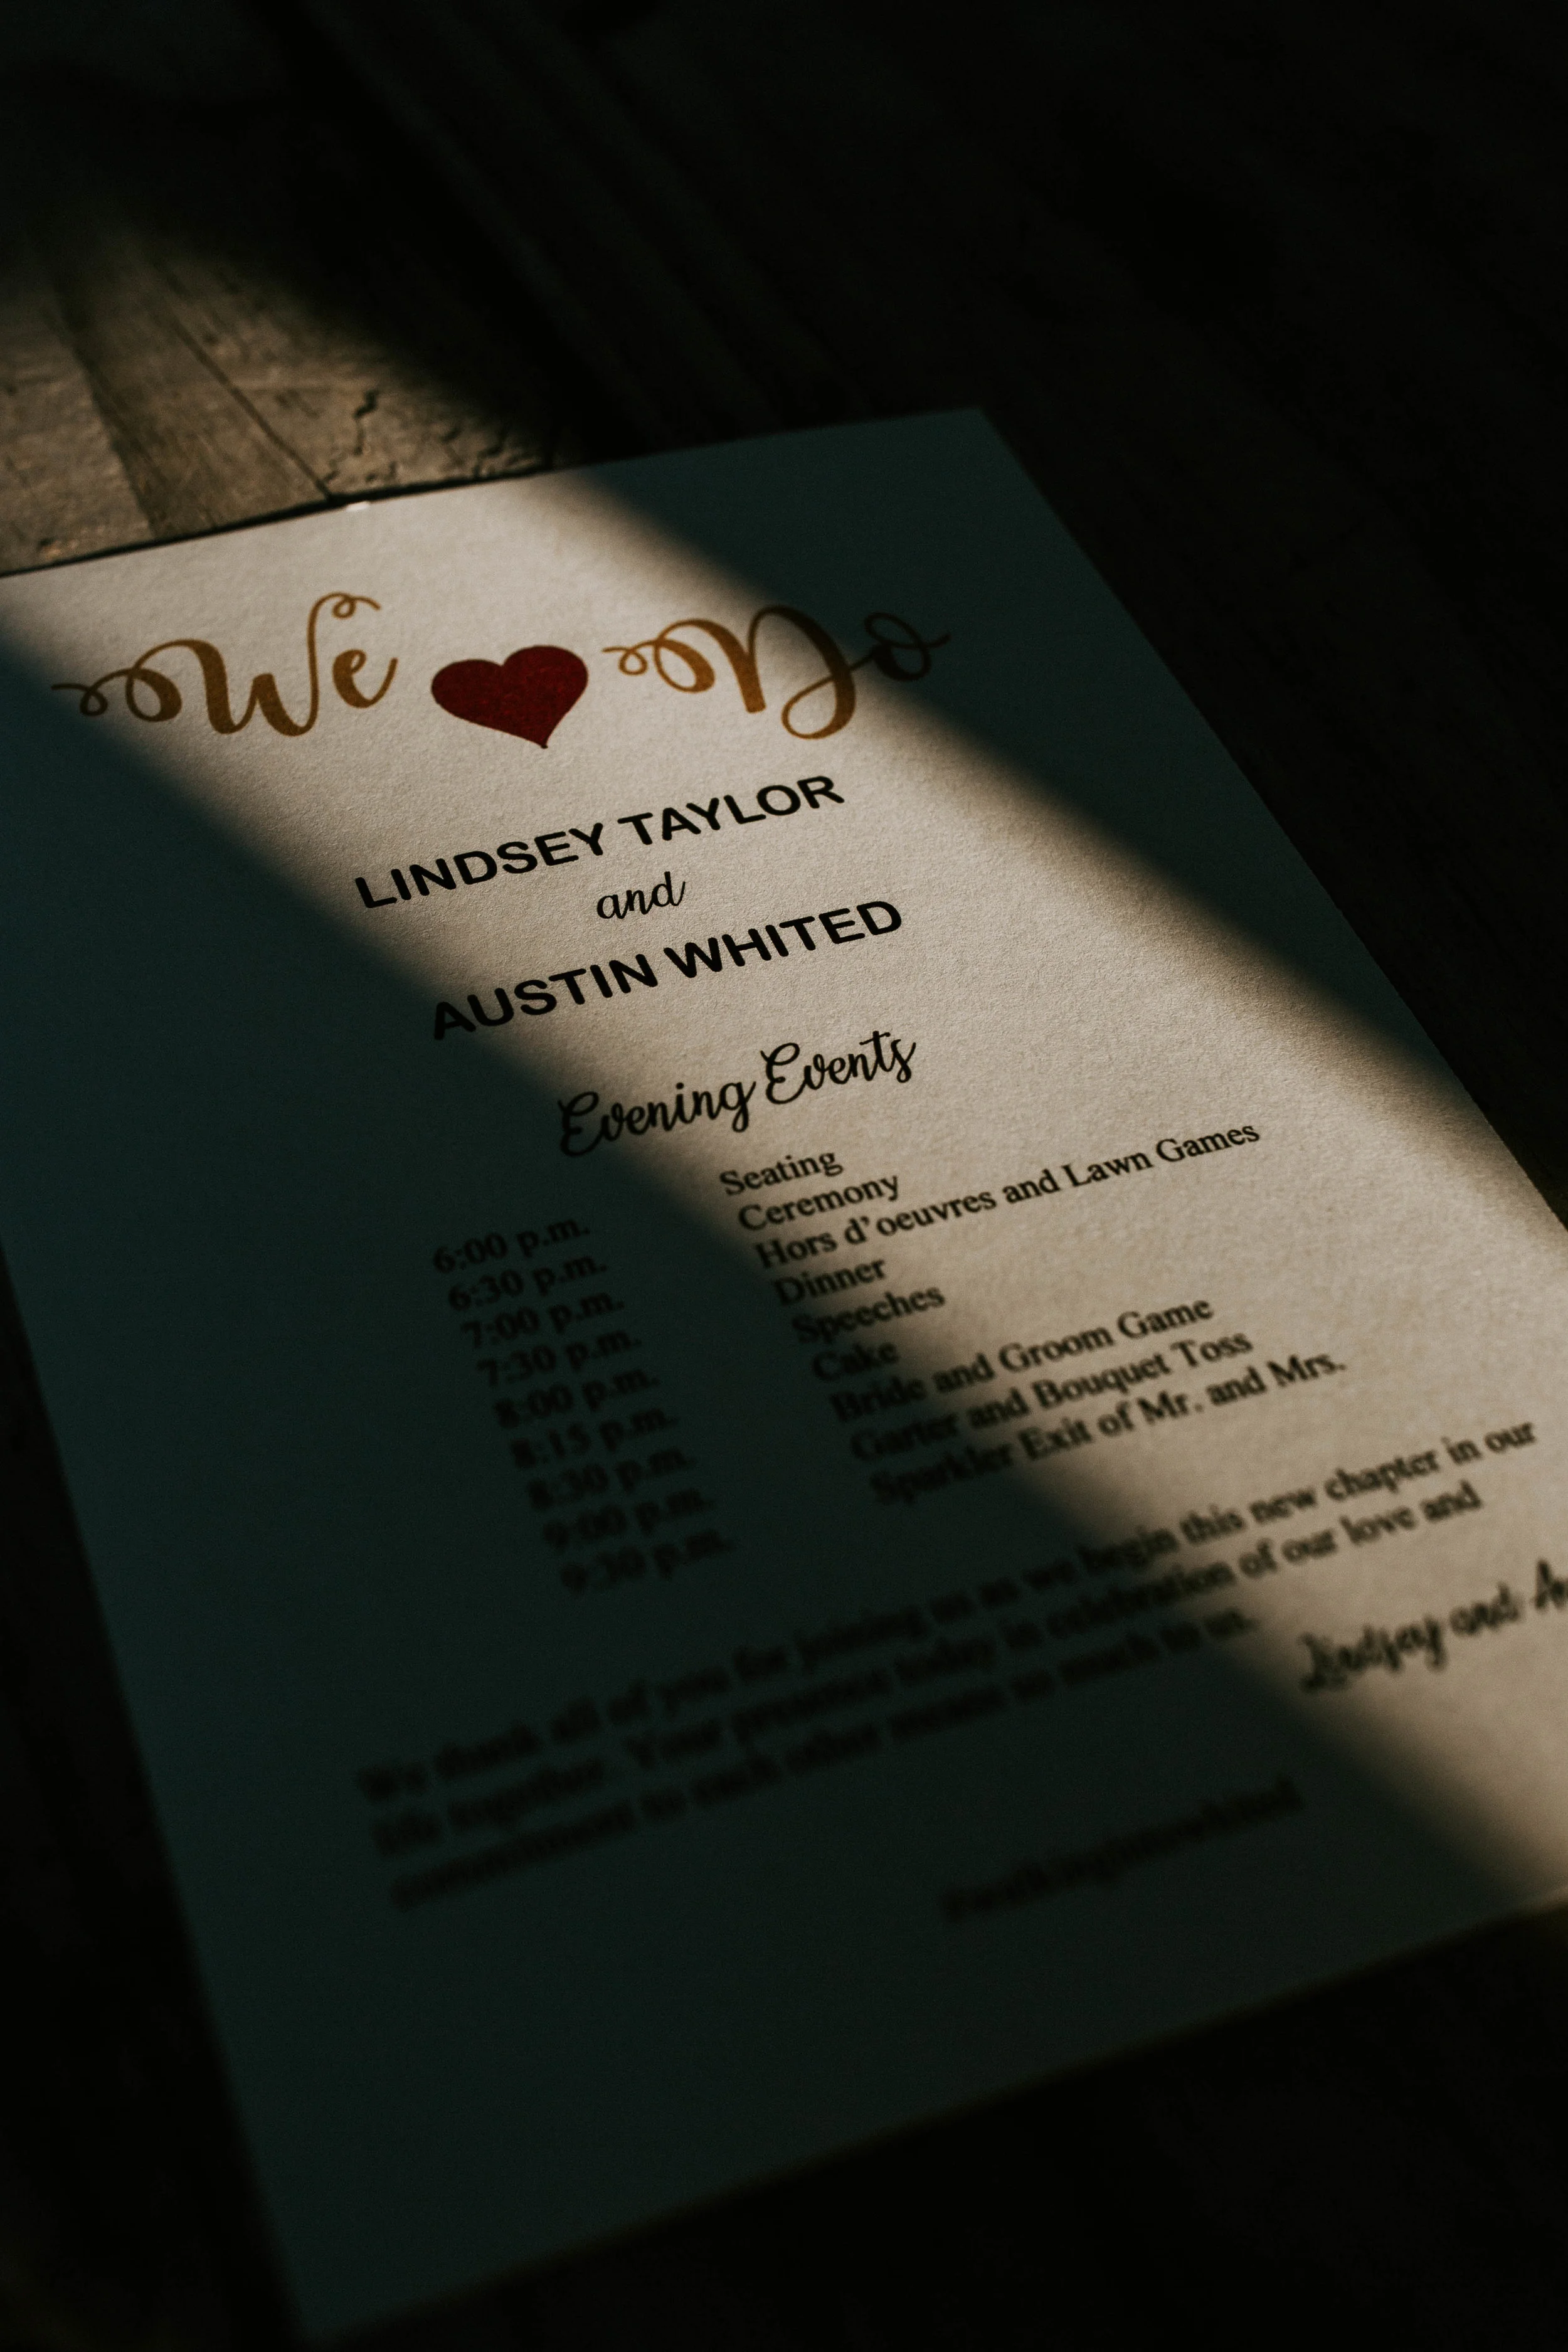 We Do
LINDSEY TAYLOR
and
AUSTIN WHITED
Evening Events
6:00 p.m. Seating
6:30 p.m. Ceremony
7:00 p.m. Hors d'oeuvres and Lawn Games
7:30 p.m. Dinner
8:00 p.m. Speeches
8:15 p.m. Cake
8:30 p.m. Bride and Groom Game
9:00 p.m. Garter and Bouquet Toss
9:30 p.m. Sparkler Exit of Mr. and Mrs.
We thank all of you for joining us as we begin this new chapter in our
life together. Your presence today in celebration of our love and
commitment to each other means so much to us.
Lindsey and